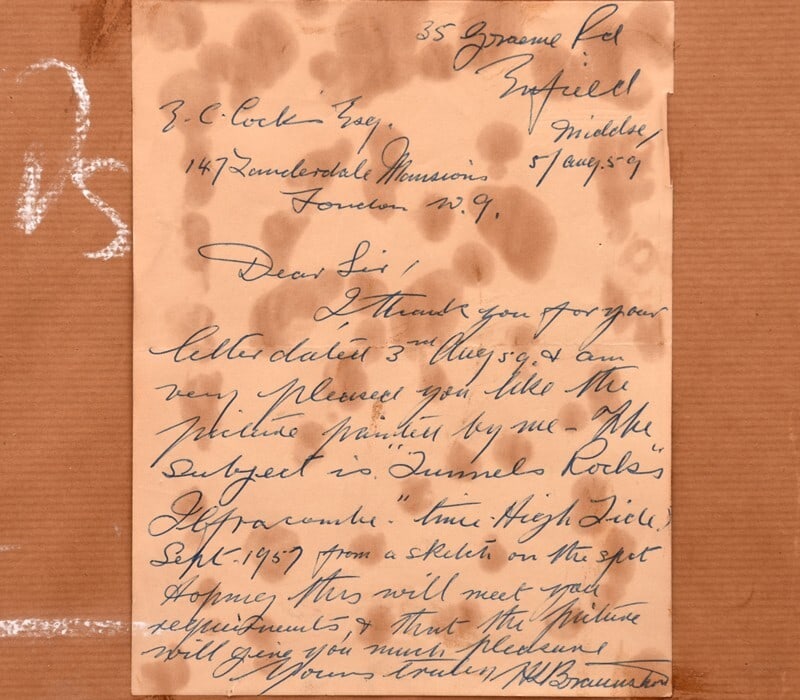 35 Graeme Rd
Enfield
Middsx,
5/Aug. 59
E. C. Cock Esq.
147 Lauderdale Mansions
London W. 9.
Dear Sir,
I thank you for your
letter dated 3rd Aug 59. & am
very pleased you like the
picture painted by me - The
subject is "Tunnels Rocks
Ilfracombe." time - High Tide.
Sept. 1957 from a sketch on the spot
Hoping this will meet your
requirements, & that the picture
will give you much pleasure
Yours truly